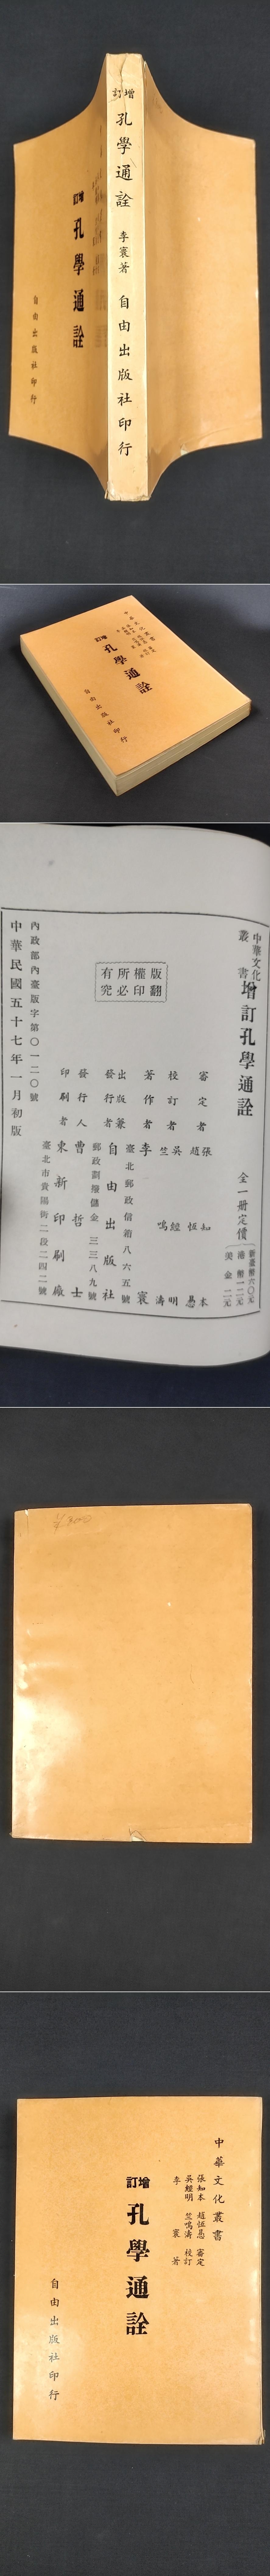 增訂
孔學通詮
李寰著
自由出版社印行
增訂
孔學通詮
自由出版社印行
增訂
孔學通詮
自由出版社印行
中華文化叢書
增訂孔學通詮
全一冊定價
新臺幣六〇元
港幣一二元
美金二元
審定者 張知本 趙恒惖
校訂者 吳經明 竺鳴濤
著作者 李寰
臺北郵政信箱八六五號
出版兼發行者 自由出版社
郵政劃撥儲金三三八九號
發行人 曹哲士
印刷者 東新印刷廠
臺北市貴陽街二段二四二號
版權所有
翻印必究
內政部內臺版字第〇一二〇號
中華民國五十七年一月初版
中華文化叢書
張知本 趙恒惖 審定
吳經明 竺鳴濤 校訂
李寰著
增訂
孔學通詮
自由出版社印行